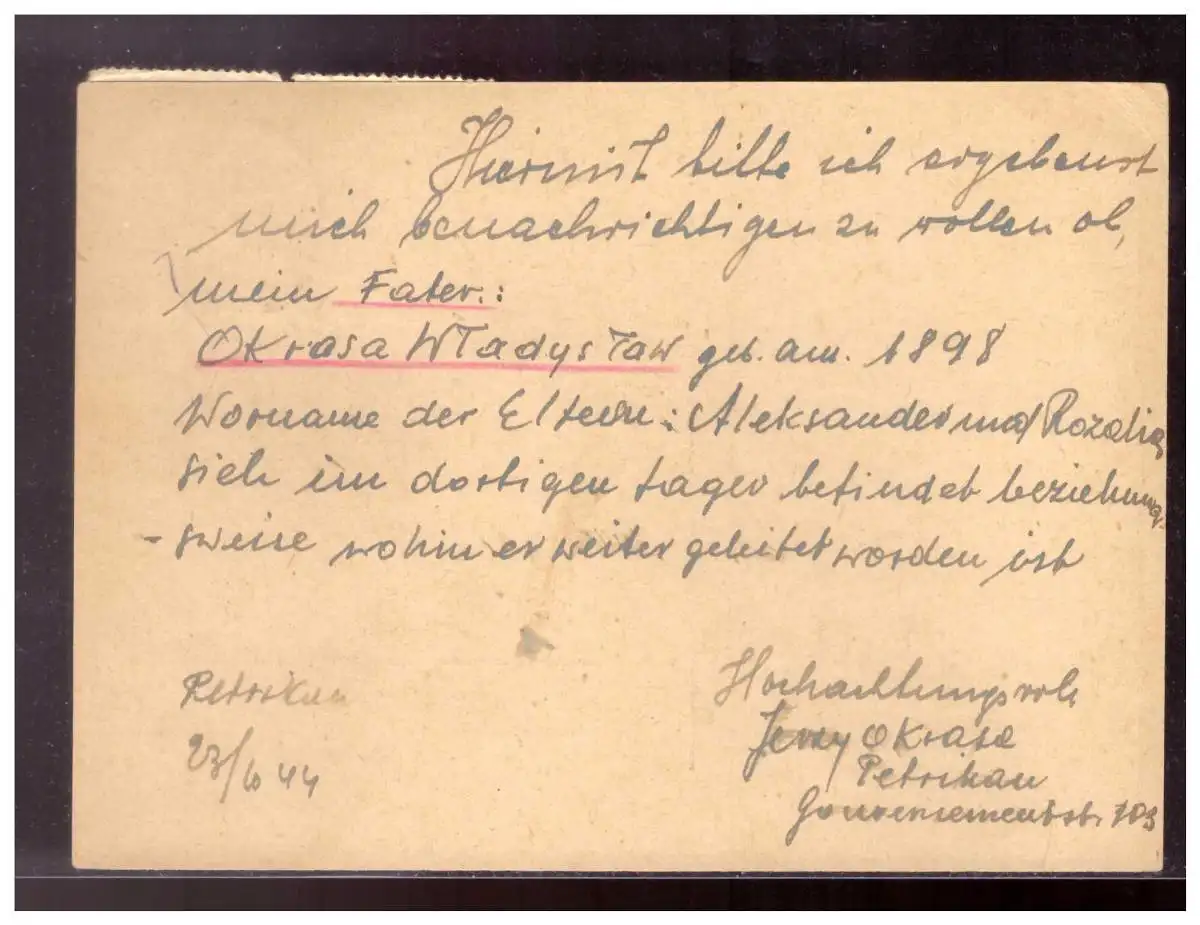 Hiermit bitte ich ergebenst
mich benachrichtigen zu wollen ob,
mein Fater.:
Okrasa Władysław geb. am. 1898
Worname der Eltern: Aleksander und Rozalia
sich im dortigen Lager befindet beziehung-
-sweise wohin er weiter geleitet worden ist
Petrikau
23/6 44
Hochachtungsvoll
Jerzy Okrasa
Petrikau
Gouvernementstr. 103